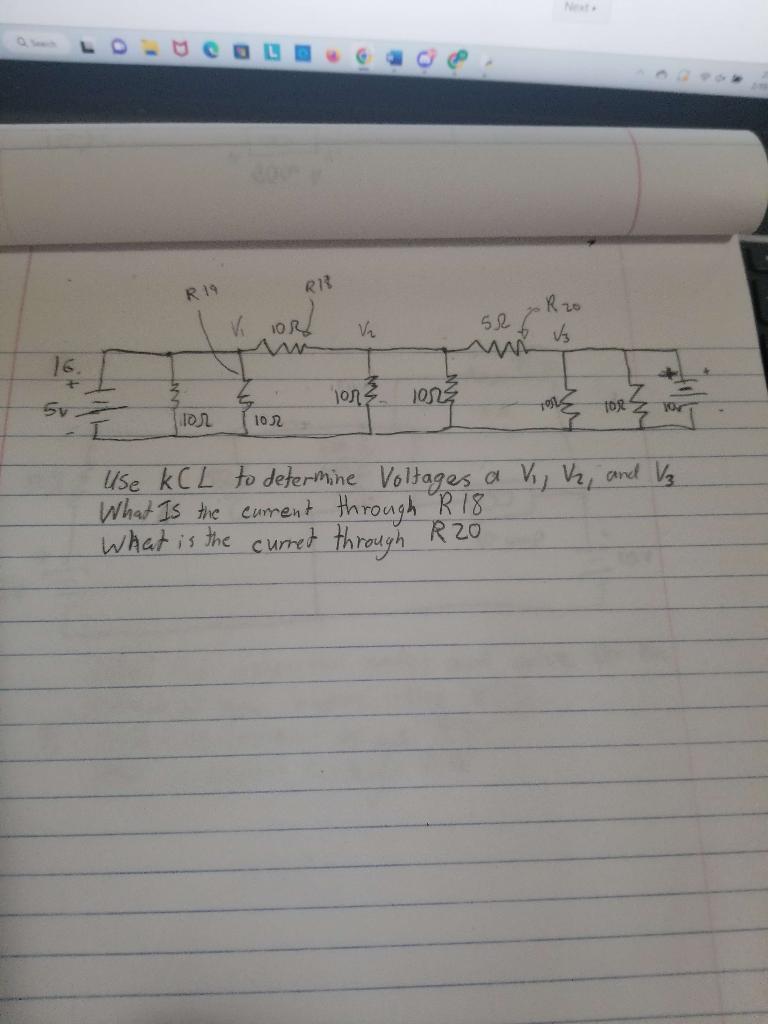 Next
Search
R19
R18
R20
V1
10Ω
V2
5Ω
V3
16.
+
+
+
5v
10Ω
10Ω
10Ω
10Ω
10Ω
10Ω
10v
-
-
Use kCL to determine Voltages a V1, V2, and V3
What Is the current through R18
What is the curret through R20